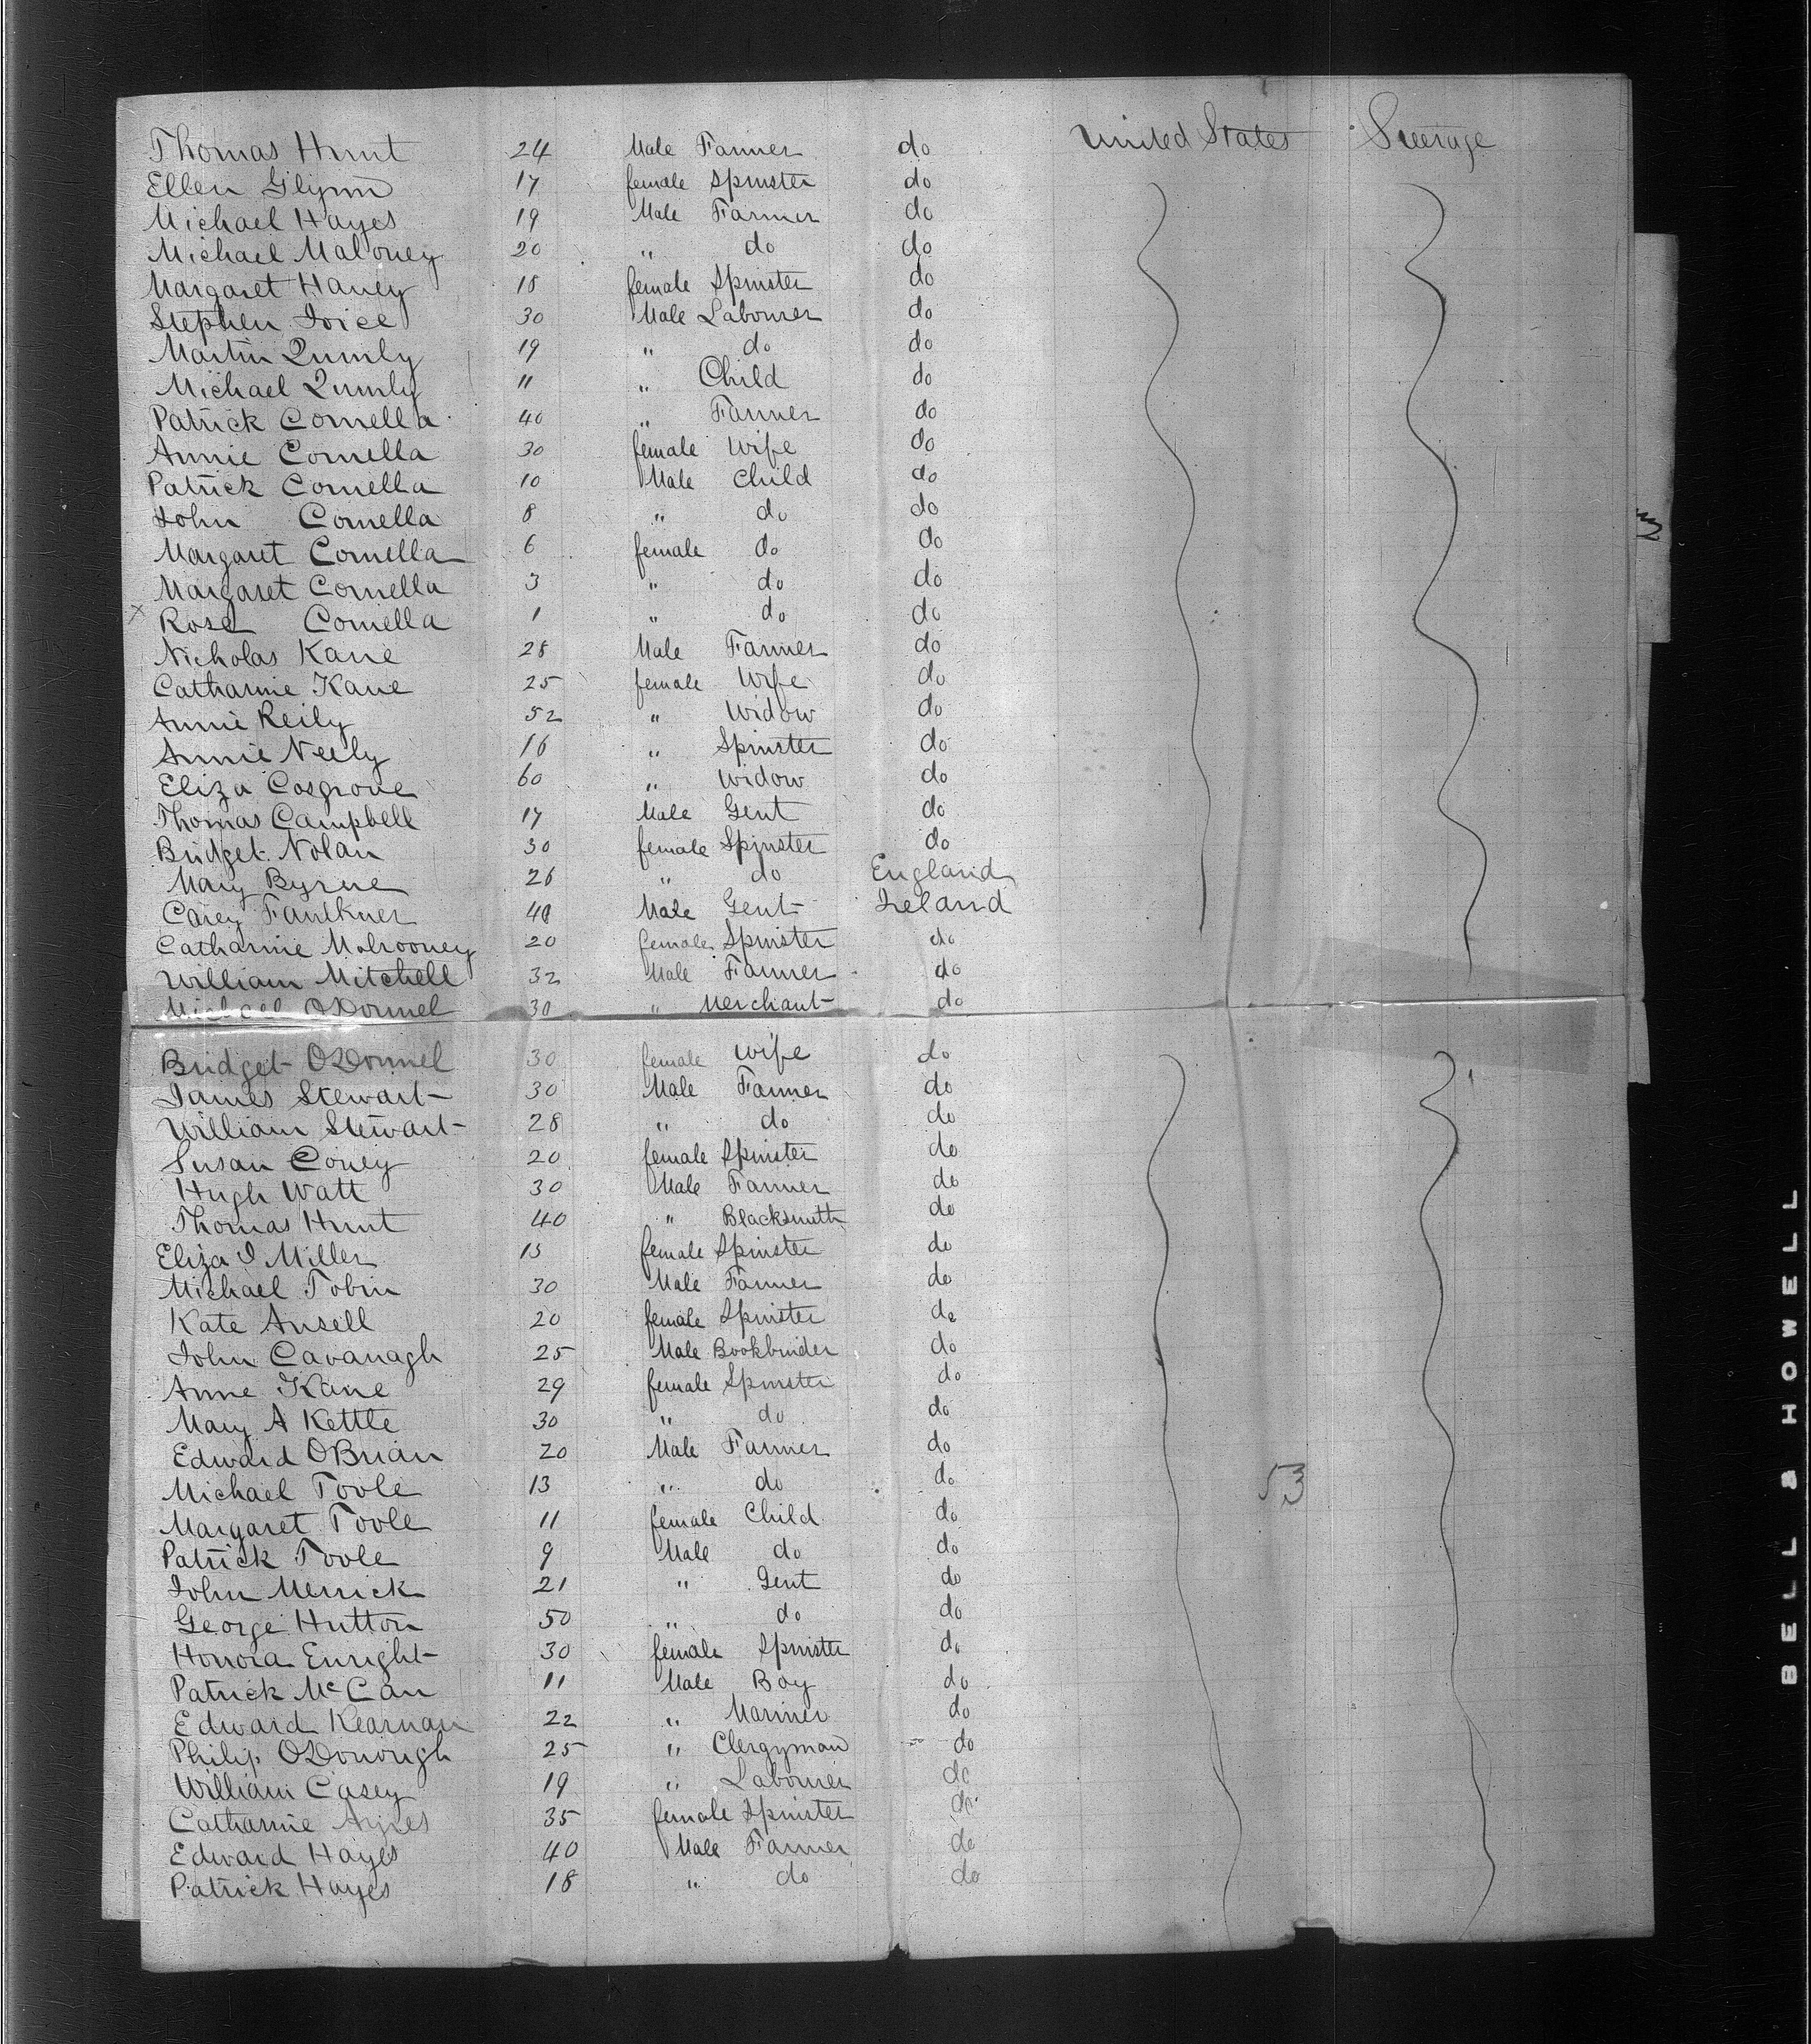 Thomas Hunt 24 Male Farmer do United States Steerage
Ellen Glynn 17 female Spinster do
Michael Hayes 19 Male Farmer do
Michael Maloney 20 " do do
Margaret Haney 18 female Spinster do
Stephen Joice 30 Male Labourer do
Martin Quinly 19 " do do
Michael Quinly 11 " Child do
Patrick Cornella 40 " Farmer do
Annie Cornella 30 female Wife do
Patrick Cornella 10 Male Child do
John Cornella 8 " do do
Margaret Cornella 6 female do do
Margaret Cornella 3 " do do
x Rose Cornella 1 " do do
Nicholas Kane 28 Male Farmer do
Catharine Kane 25 female Wife do
Annie Reily 52 " Widow do
Annie Neely 16 " Spinster do
Eliza Cosgrove 60 " Widow do
Thomas Campbell 17 Male Gent do
Bridget Nolan 30 female Spinster do
Mary Byrne 26 " do England
Carey Faulkner 48 Male Gent Ireland
Catharine Molrooney 20 female Spinster do
William Mitchell 32 Male Farmer do
Michael ODonnel 30 " Merchant do
Bridget ODonnel 30 female Wife do
James Stewart 30 Male Farmer do
William Stewart 28 " do do
Susan Coney 20 female Spinster do
Hugh Watt 30 Male Farmer do
Thomas Hunt 40 " Blacksmith do
Eliza J Miller 15 female Spinster do
Michael Tobin 30 Male Farmer do
Kate Ansell 20 female Spinster do
John Cavanagh 25 Male Bookbinder do
Anne Kane 29 female Spinster do
Mary A Kettle 30 " do do
Edward OBrian 20 Male Farmer do
Michael Toole 13 " do do 53
Margaret Toole 11 female Child do
Patrick Toole 9 Male do do
John Merrick 21 " Gent do
George Hutton 50 " do do
Honora Enright 30 female Spinster do
Patrick McCan 11 Male Boy do
Edward Kearnan 22 " Mariner do
Philip ODonough 25 " Clergyman do
William Casey 19 " Labourer do
Catharine 35 female Spinster do
Edward Hayes 40 Male Farmer do
Patrick Hayes 18 " do do
BELL & HOWELL